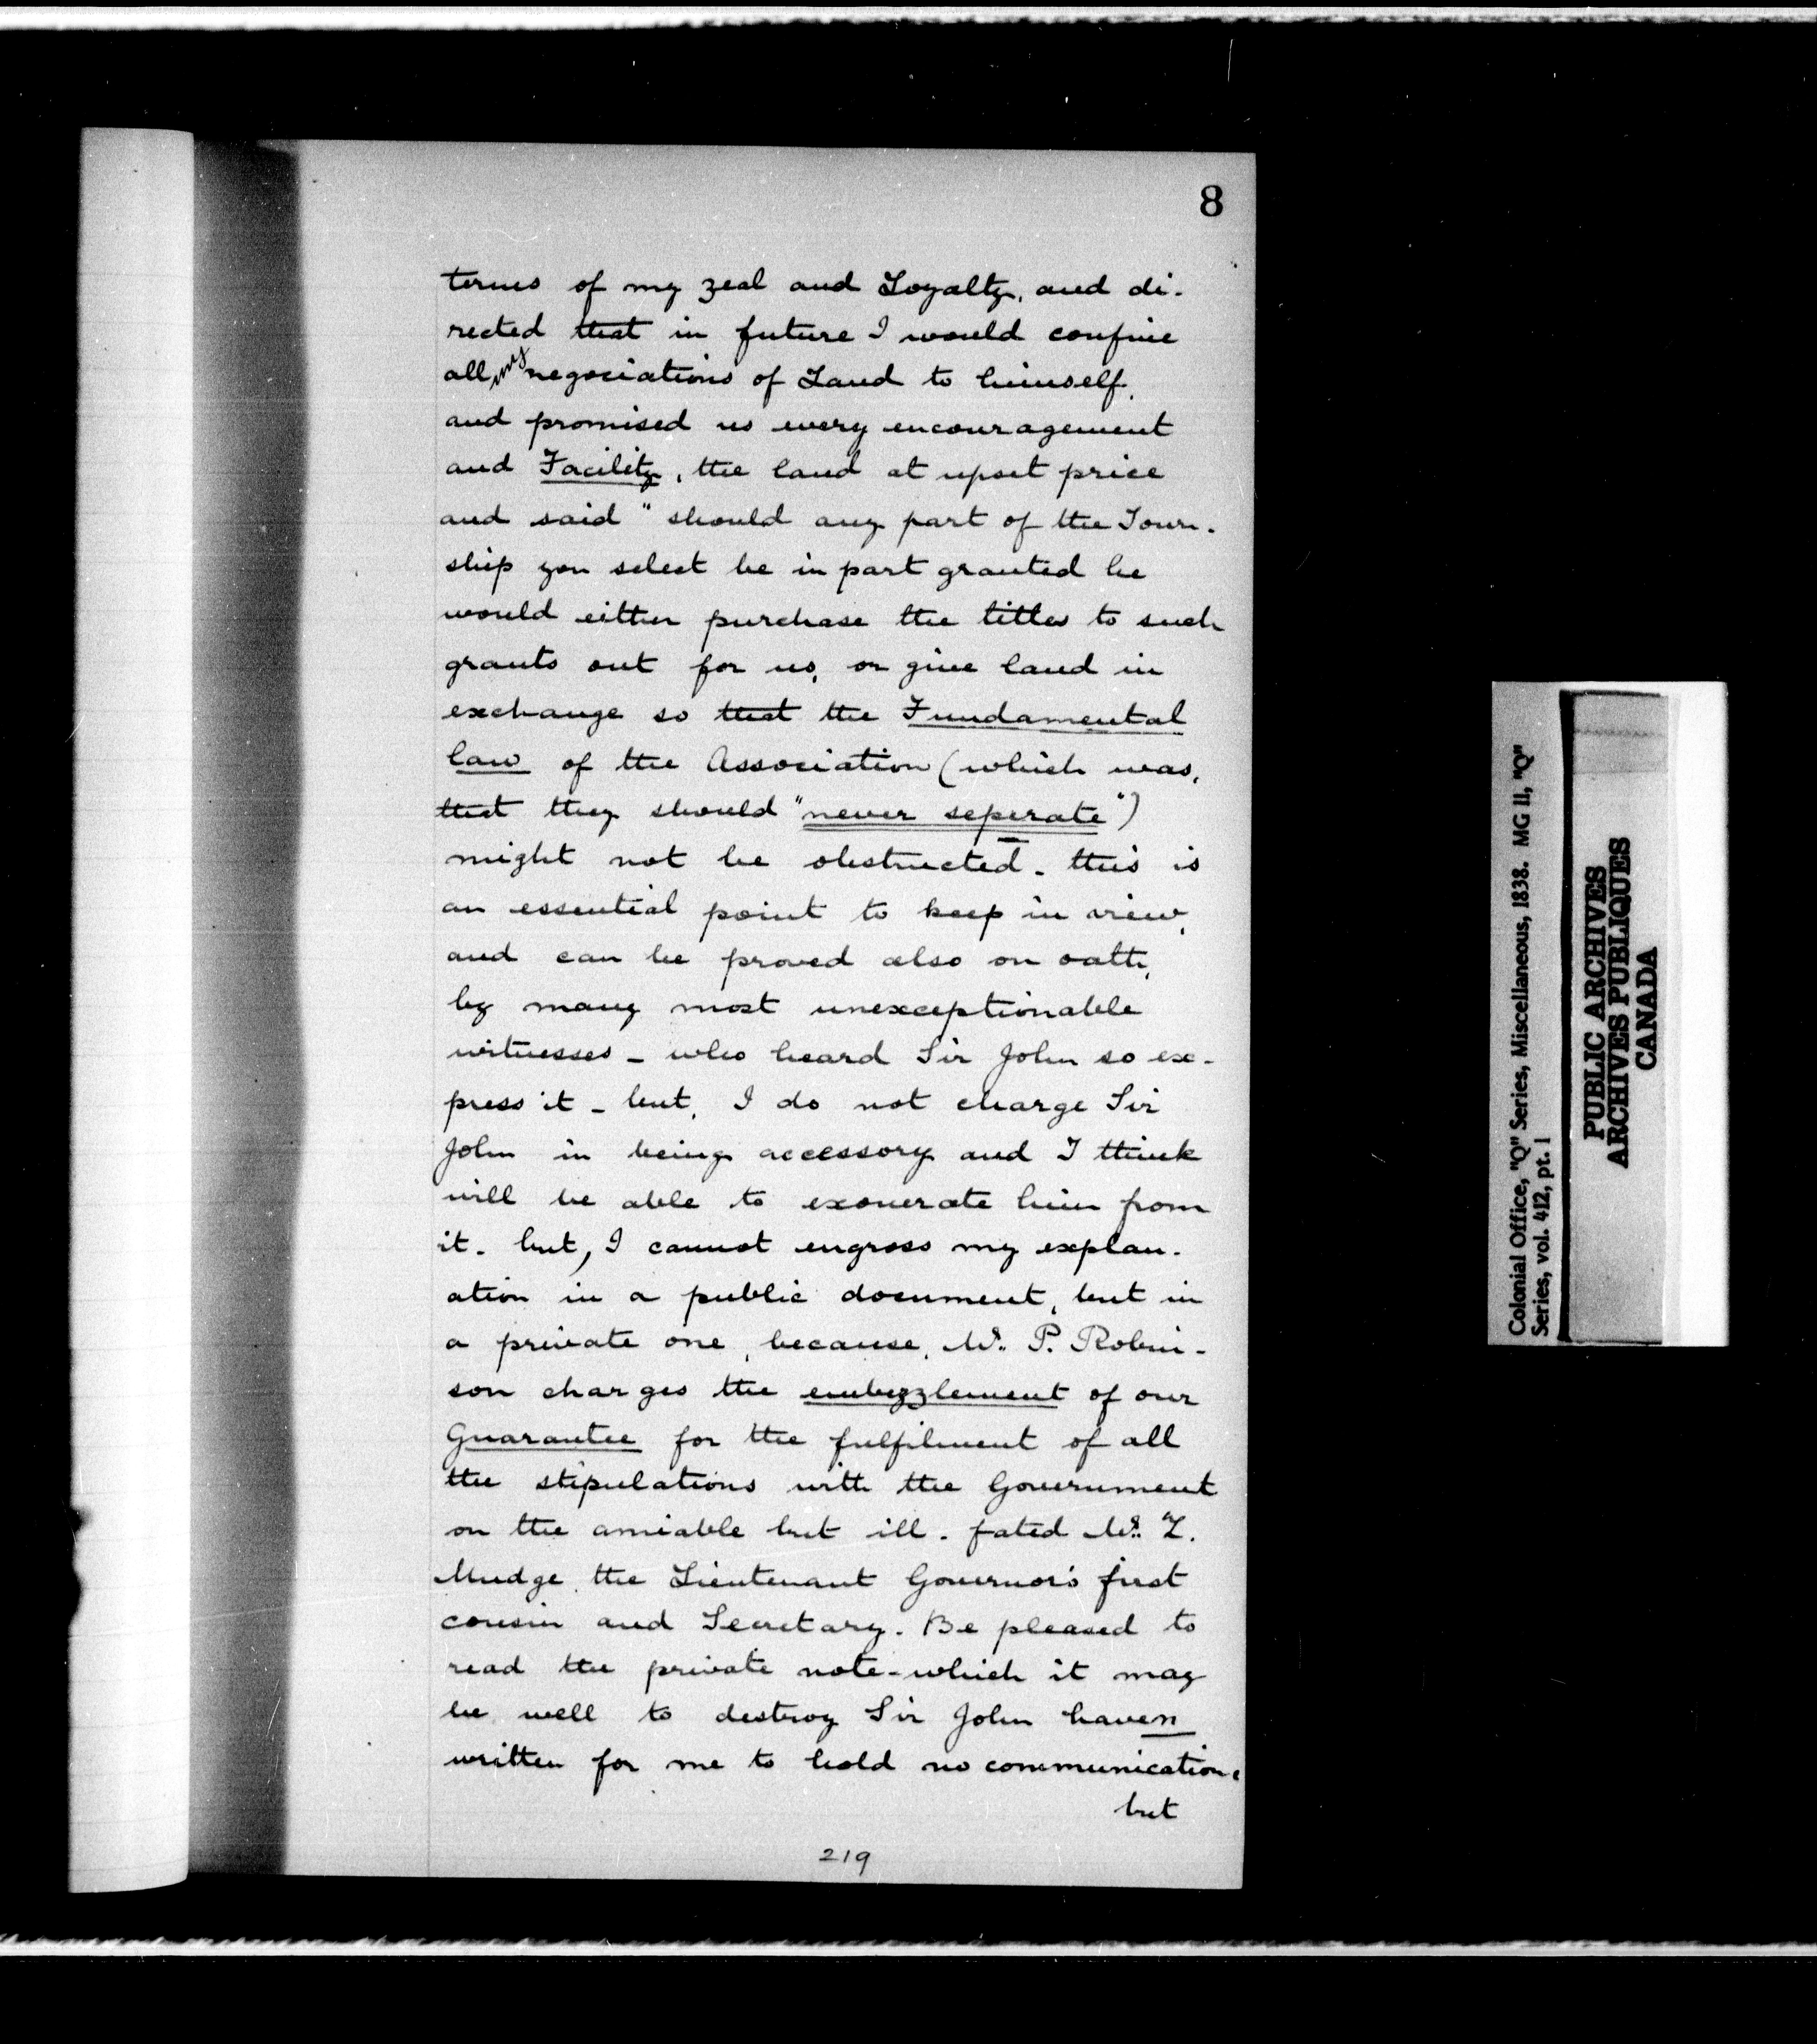 8
terms of my zeal and Loyalty, and di-
rected that in future I would confine
all my negociations of Land to himself,
and promised us every encouragement
and Facility, the land at upset price
and said "should any part of the Town-
ship you select be in part granted he
would either purchase the titles to such
grants out for us, or give land in
exchange so that the Fundamental
law of the Association (which was,
that they should "never seperate")
might not be obstructed - this is
an essential point to keep in view,
and can be proved also on oath,
by many most unexceptionable
witnesses - who heard Sir John so ex-
press it - but, I do not charge Sir
John in being accessory and I think
will be able to exonerate him from
it - but, I cannot engross my explan-
ation in a public document, but in
a private one, because, Mr. P. Robin-
son charges the embezzlement of our
Guarantee for the fulfilment of all
the stipulations with the Government
on the amiable but ill-fated Mr. Z.
Mudge, the Lieutenant Governor's first
cousin and Secretary. Be pleased to
read the private note - which it may
be well to destroy Sir John haven
written for me to hold no communication,
but
219
Colonial Office, "Q" Series, Miscellaneous, 1838. MG 11, "Q"
Series, vol. 412, pt. 1
PUBLIC ARCHIVES
ARCHIVES PUBLIQUES
CANADA